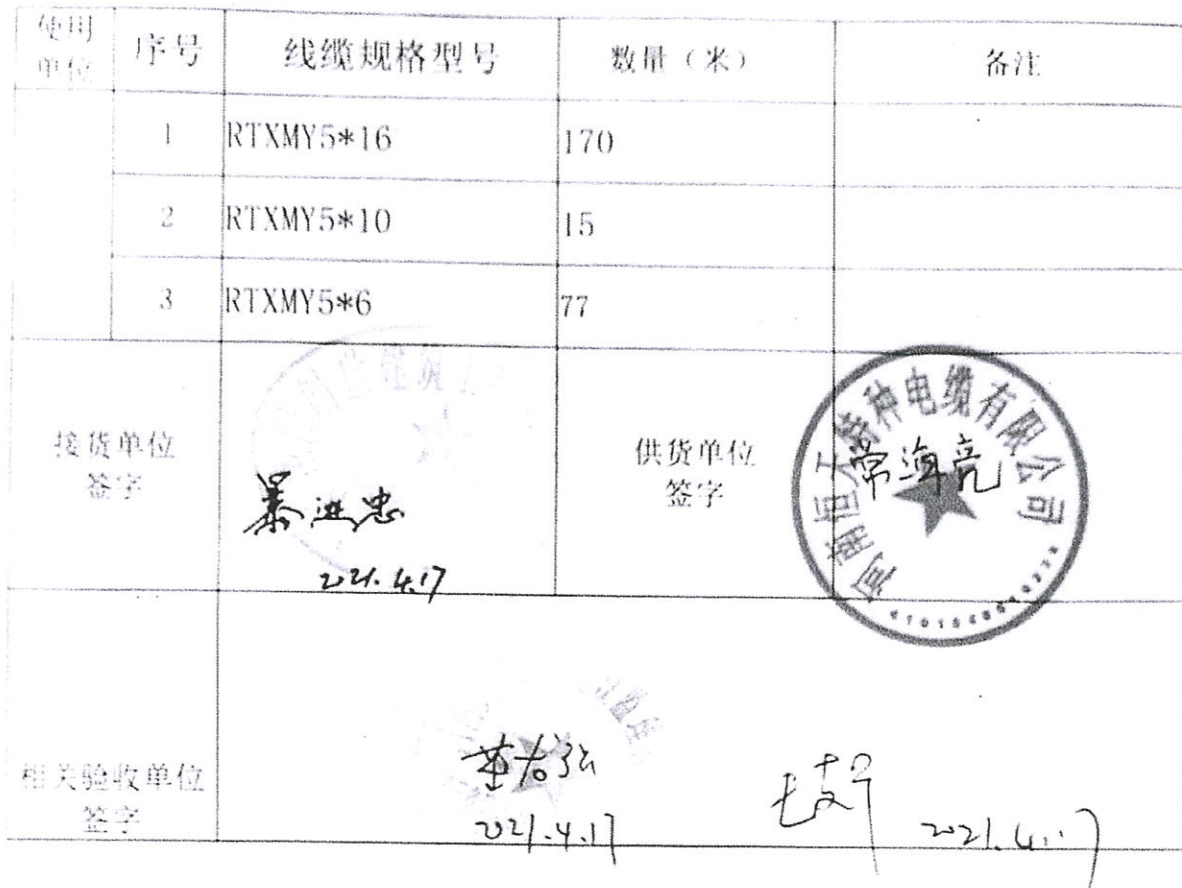 使用
单位
序号
线缆规格型号
数量（米）
备注
1
RTXMY5*16
170
2
RTXMY5*10
15
3
RTXMY5*6
77
接货单位
签字
2021.4.17
供货单位
签字
河南恒天特种电缆有限公司
常海亮
相关验收单位
签字
2021.4.17
2021.4.17